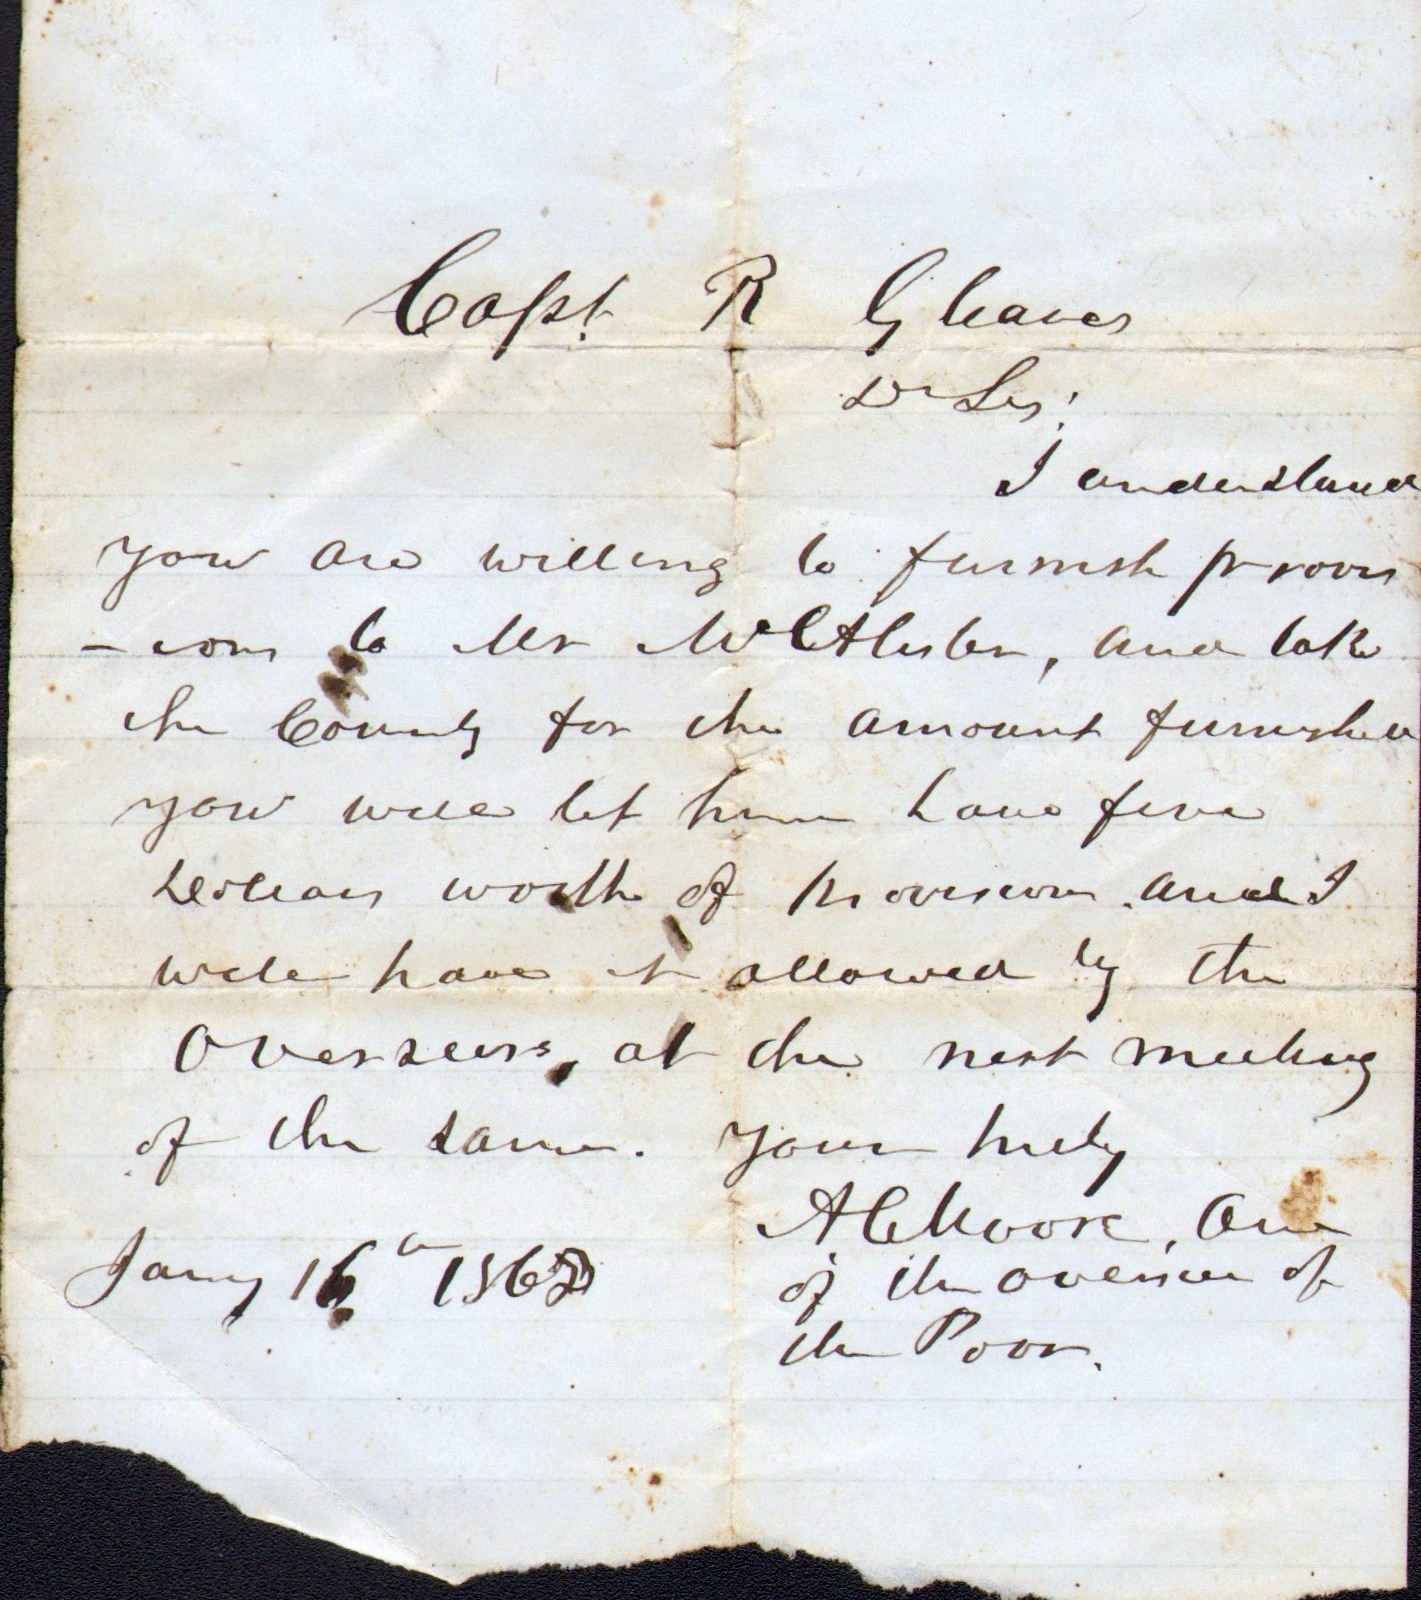 Capt. R Gleaves
Dr Sir;
I understand
you are willing to furnish provis
- ions to Mr McAlister, and take
the County for the amount furnished
you will let him have five
Dollars worth of provisions and I
will have it allowed by the
Overseers, at the next meeting
of the same. Yours truly
A C Moore, One
of the overseer of
the Poor.
Jany 16th 186